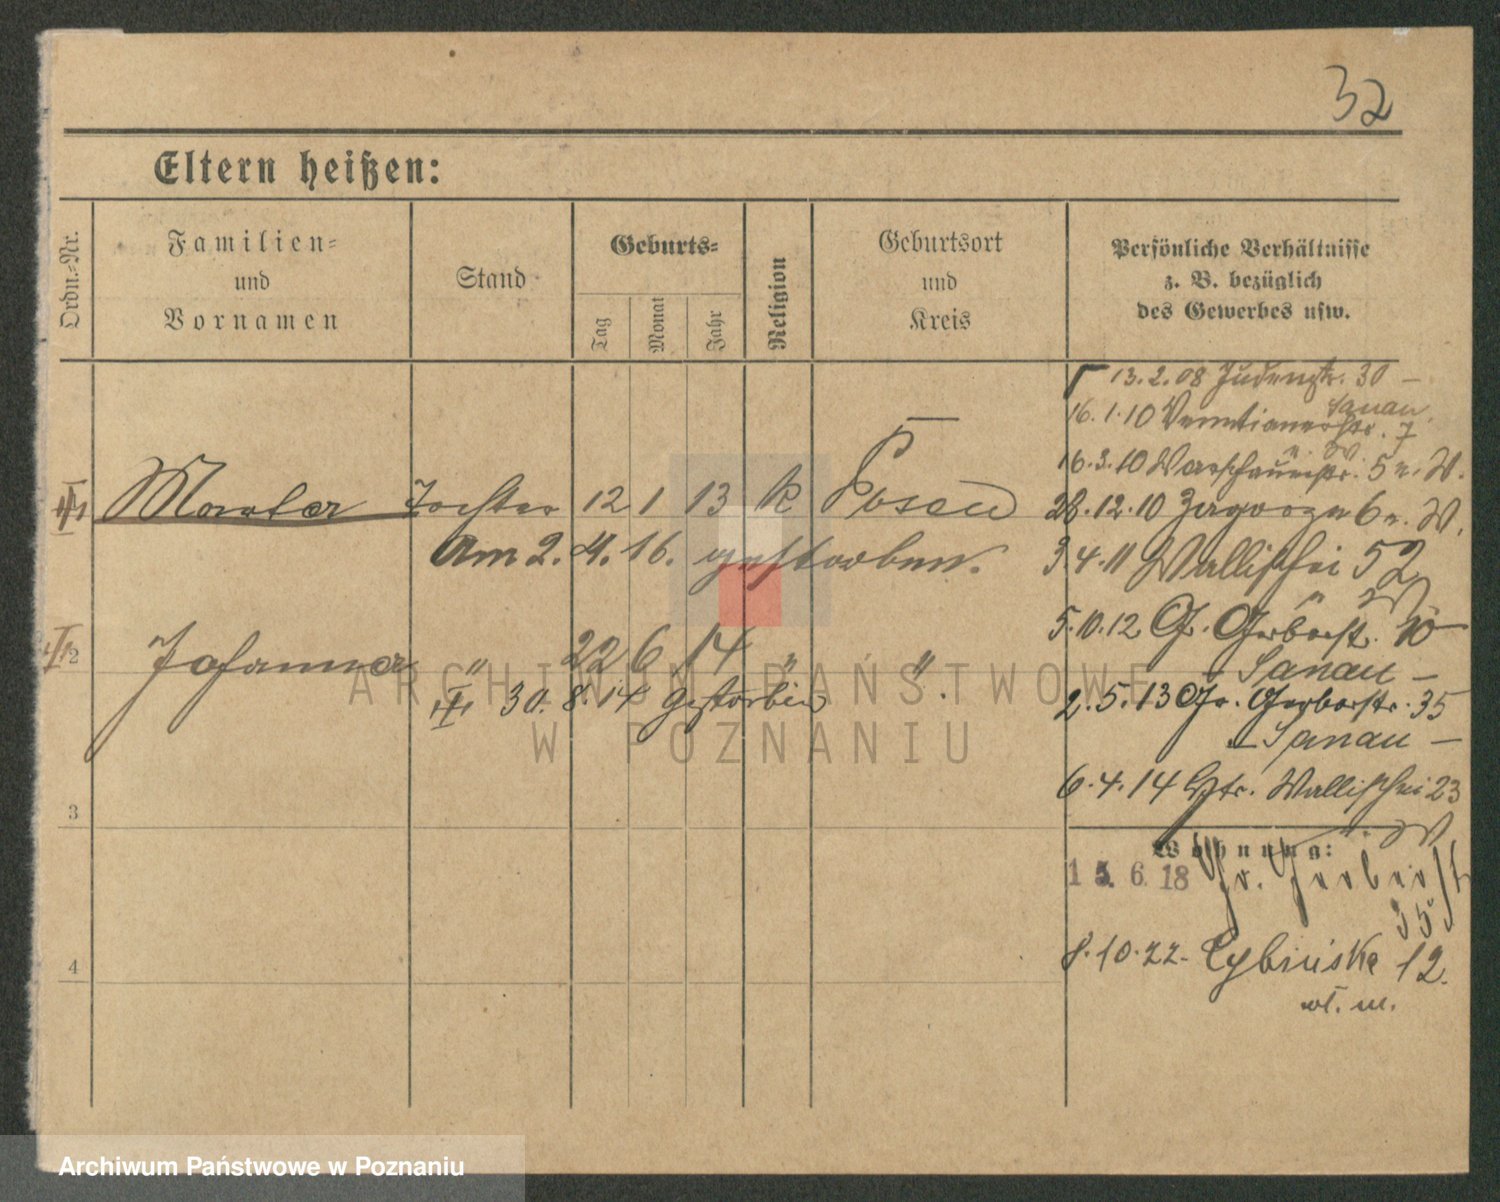 32
Eltern heißen:
Ordn.-Nr.
Familien-
und
Vornamen
Stand
Geburts-
Tag
Monat
Jahr
Religion
Geburtsort
und
Kreis
Persönliche Verhältnisse
z. B. bezüglich
des Gewerbes usw.
13.2.08 Judenstr. 30 –
16.1.10 Venetianerstr. 7
16.3.10 Warschauerstr. 5 n. W.
Tochter 12 1 13 k Posen
28.12.10 Zagorze 6 n. W.
Am 2. 4. 16. gestorben.
3.4.11 Wallischei 52
n W
5.10.12 Gr. Gerberst. 10
2 Johanna " 22 6 14 " "
– Sanau –
III 30. 8. 14 Gestorben
2.5.13 Gr. Gerberstr. 35
– Sanau –
6.4.14 Str. Wallischei 23
n. W
3
Wohnung:
15. 6. 18 Gr. Gerberst
35
4
8.10.22. Cybińska 12.
wł. m.
ARCHIWUM PAŃSTWOWE
W POZNANIU
Archiwum Państwowe w Poznaniu